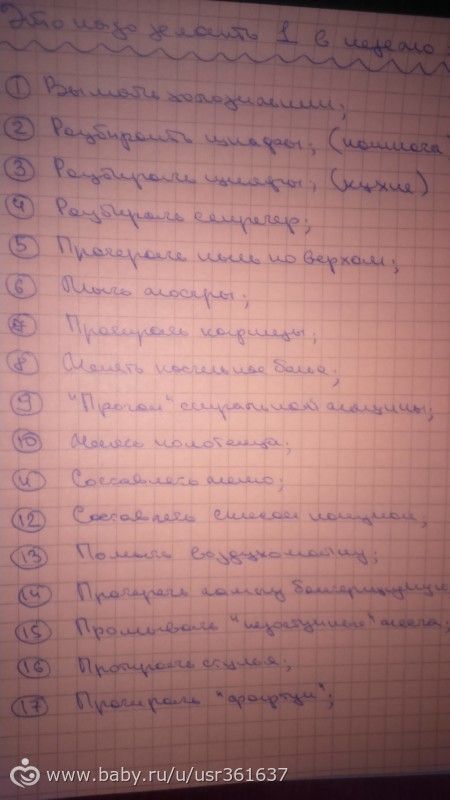 Это надо делать 1 в неделю:
1 Вымыть холодильник;
2 Разбирать шкафы; (комната
3 Разбирать шкафы; (кухне)
4 Разбирать секретер;
5 Протирать пыль по верхам;
6 Мыть люстры;
7 Протирать карнизы;
8 Менять постельное белье;
9 "Прогон" стиральной машины;
10 Менять полотенца;
11 Составлять меню;
12 Составлять список покупок;
13 Помыть воздухомойку;
14 Протирать лампу бактерицидную
15 Промывать "недоступные" места;
16 Протирать стулья;
17 Протирать "фартук";
www.baby.ru/u/usr361637